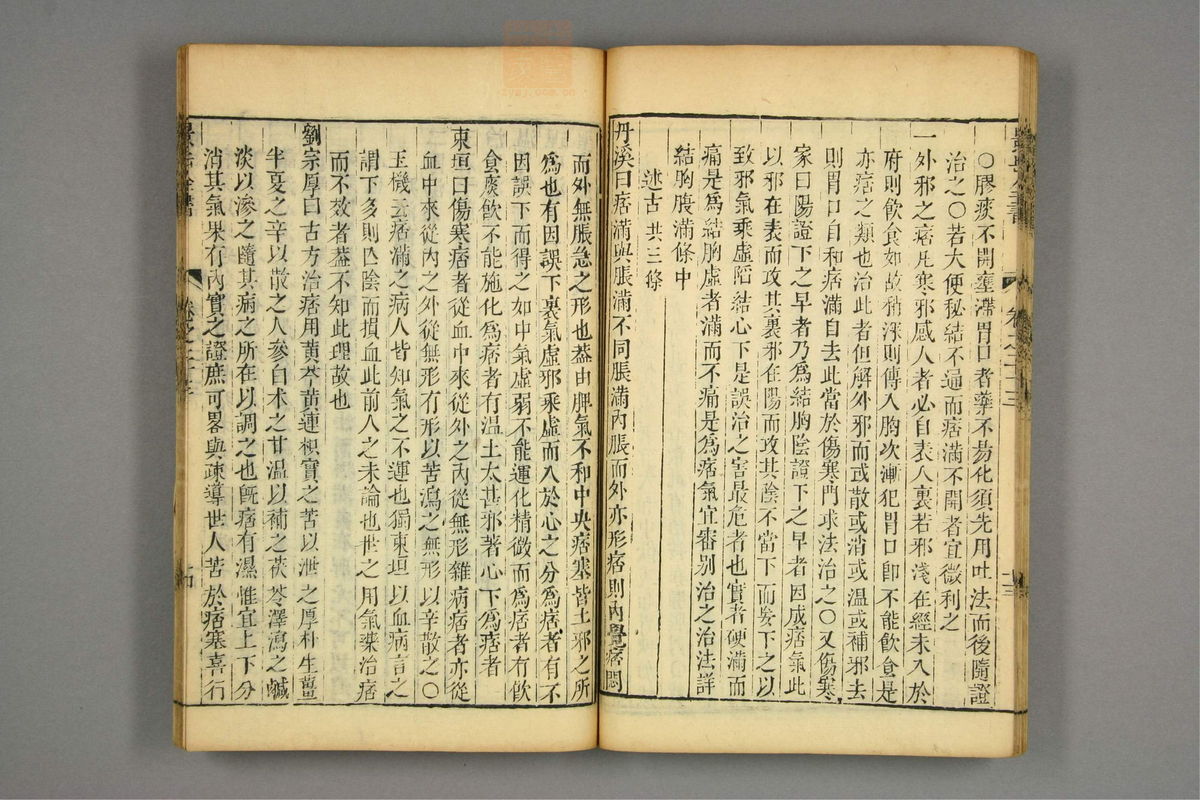 ○膠痰不開壅滯胃口者藥不易化須先用吐法而後隨證
治之○若大便秘結不通而痞滿不開者宜微利之
一外邪之痞凡寒邪感人者必自表入裏若邪淺在經未入於
府則飲食如故稍深則傳入胸次漸犯胃口卽不能飲食是
亦痞之類也治此者但解外邪而或散或消或溫或補邪去
則胃口自和痞滿自去此當於傷寒門求法治之○又傷寒
家曰陽證下之早者乃爲結胸陰證下之早者因成痞氣此
以邪在表而攻其裏邪在陽而攻其陰不當下而妄下之以
致邪氣乘虛陷結心下是誤治之害最危者也實者硬滿而
痛是爲結胸虛者滿而不痛是爲痞氣宜審别治之治法詳
結胸腹滿條中
述古共三條
丹溪曰痞滿與脹滿不同脹滿內脹而外亦形痞則內覺痞悶
而外無脹急之形也蓋由脾氣不和中央痞塞皆土邪之所
爲也有因誤下裏氣虛邪乘虛而入於心之分爲痞者有不
因誤下而得之如中氣虛弱不能運化精微而爲痞者有飲
食痰飲不能施化爲痞者有溫土太甚邪著心下爲痞者
東垣曰傷寒痞者從血中來從外之內從無形雜病痞者亦從
血中來從內之外從無形有形以苦瀉之無形以辛散之○
玉機云痞滿之病人皆知氣之不運也獨東垣以血病言之
謂下多則亡陰而損血此前人之未論也世之用氣藥治痞
而不效者蓋不知此理故也
劉宗厚曰古方治痞用黃芩黃連枳實之苦以泄之厚朴生薑
半夏之辛以散之人參白术之甘溫以補之茯苓澤瀉之鹹
淡以滲之隨其病之所在以調之也旣痞有濕惟宜上下分
消其氣果有內實之證庶可畧與疎導世人苦於痞塞喜行